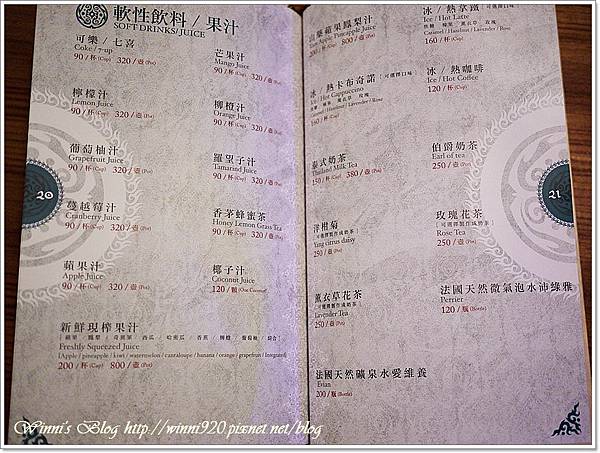 軟性飲料 / 果汁
SOFT DRINKS/JUICE
可樂 / 七喜
Coke / 7-up
90 / 杯 (Cup) 320 / 壺 (Pot)
檸檬汁
Lemon Juice
90 / 杯 (Cup) 320 / 壺 (Pot)
葡萄柚汁
Grapefruit Juice
90 / 杯 (Cup) 320 / 壺 (Pot)
蔓越莓汁
Cranberry Juice
90 / 杯 (Cup) 320 / 壺 (Pot)
蘋果汁
Apple Juice
90 / 杯 (Cup) 320 / 壺 (Pot)
芒果汁
Mango Juice
90 / 杯 (Cup) 320 / 壺 (Pot)
柳橙汁
Orange Juice
90 / 杯 (Cup) 320 / 壺 (Pot)
羅望子汁
Tamarind Juice
90 / 杯 (Cup) 320 / 壺 (Pot)
香茅蜂蜜茶
Honey Lemon Grass Tea
90 / 杯 (Cup) 320 / 壺 (Pot)
椰子汁
Coconut Juice
120 / 顆 (One Coconut)
新鮮現榨果汁
Freshly Squeezed Juice
[Apple / pineapple / kiwi / watermelon / cantaloupe / banana / orange / grapefruit / Integrated]
200 / 杯 (Cup) 800 / 壺 (Pot)
20
山藥蘋果鳳梨汁
Yam Apple Pineapple Juice
200 / 杯 (Cup) 800 / 壺 (Pot)
冰 / 熱卡布奇諾 [ 可選擇口味 ]
Ice / Hot Cappuccino
Caramel / Hazelnut / Lavender / Rose
160 / 杯 (Cup)
泰式奶茶
Thailand Milk Tea
150 / 杯 (Cup) 380 / 壺 (Pot)
洋柑菊
[ 可選擇製作成奶茶 ]
Ying citrus daisy
250 / 壺 (Pot)
薰衣草花茶
[ 可選擇製作成奶茶 ]
Lavender Tea
250 / 壺 (Pot)
法國天然礦泉水愛維養
Evian
200 / 瓶 (Bottle)
冰 / 熱拿鐵 [ 可選擇口味 ]
Ice / Hot Latte
焦糖 榛果 薰衣草 玫瑰
Caramel / Hazelnut / Lavender / Rose
160 / 杯 (Cup)
冰 / 熱咖啡
Ice / Hot Coffee
120 / 杯 (Cup)
伯爵奶茶
Earl of tea
250 / 壺 (Pot)
玫瑰花茶
[ 可選擇製作成奶茶 ]
Rose Tea
250 / 壺 (Pot)
法國天然微氣泡水沛綠雅
Perrier
120 / 瓶 (Bottle)
21
Winni's Blog http://winni920.pixnet.net/blog